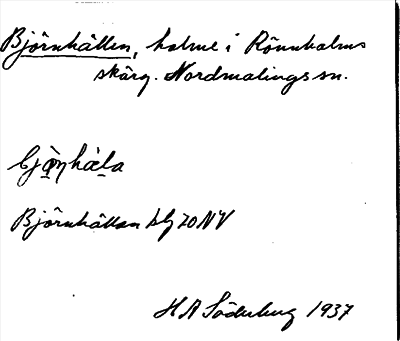 Björnhällen, holme i Rönnholms
skärg. Nordmalings sn.
Björnhällan bg 70 NV
H A Söderberg 1937